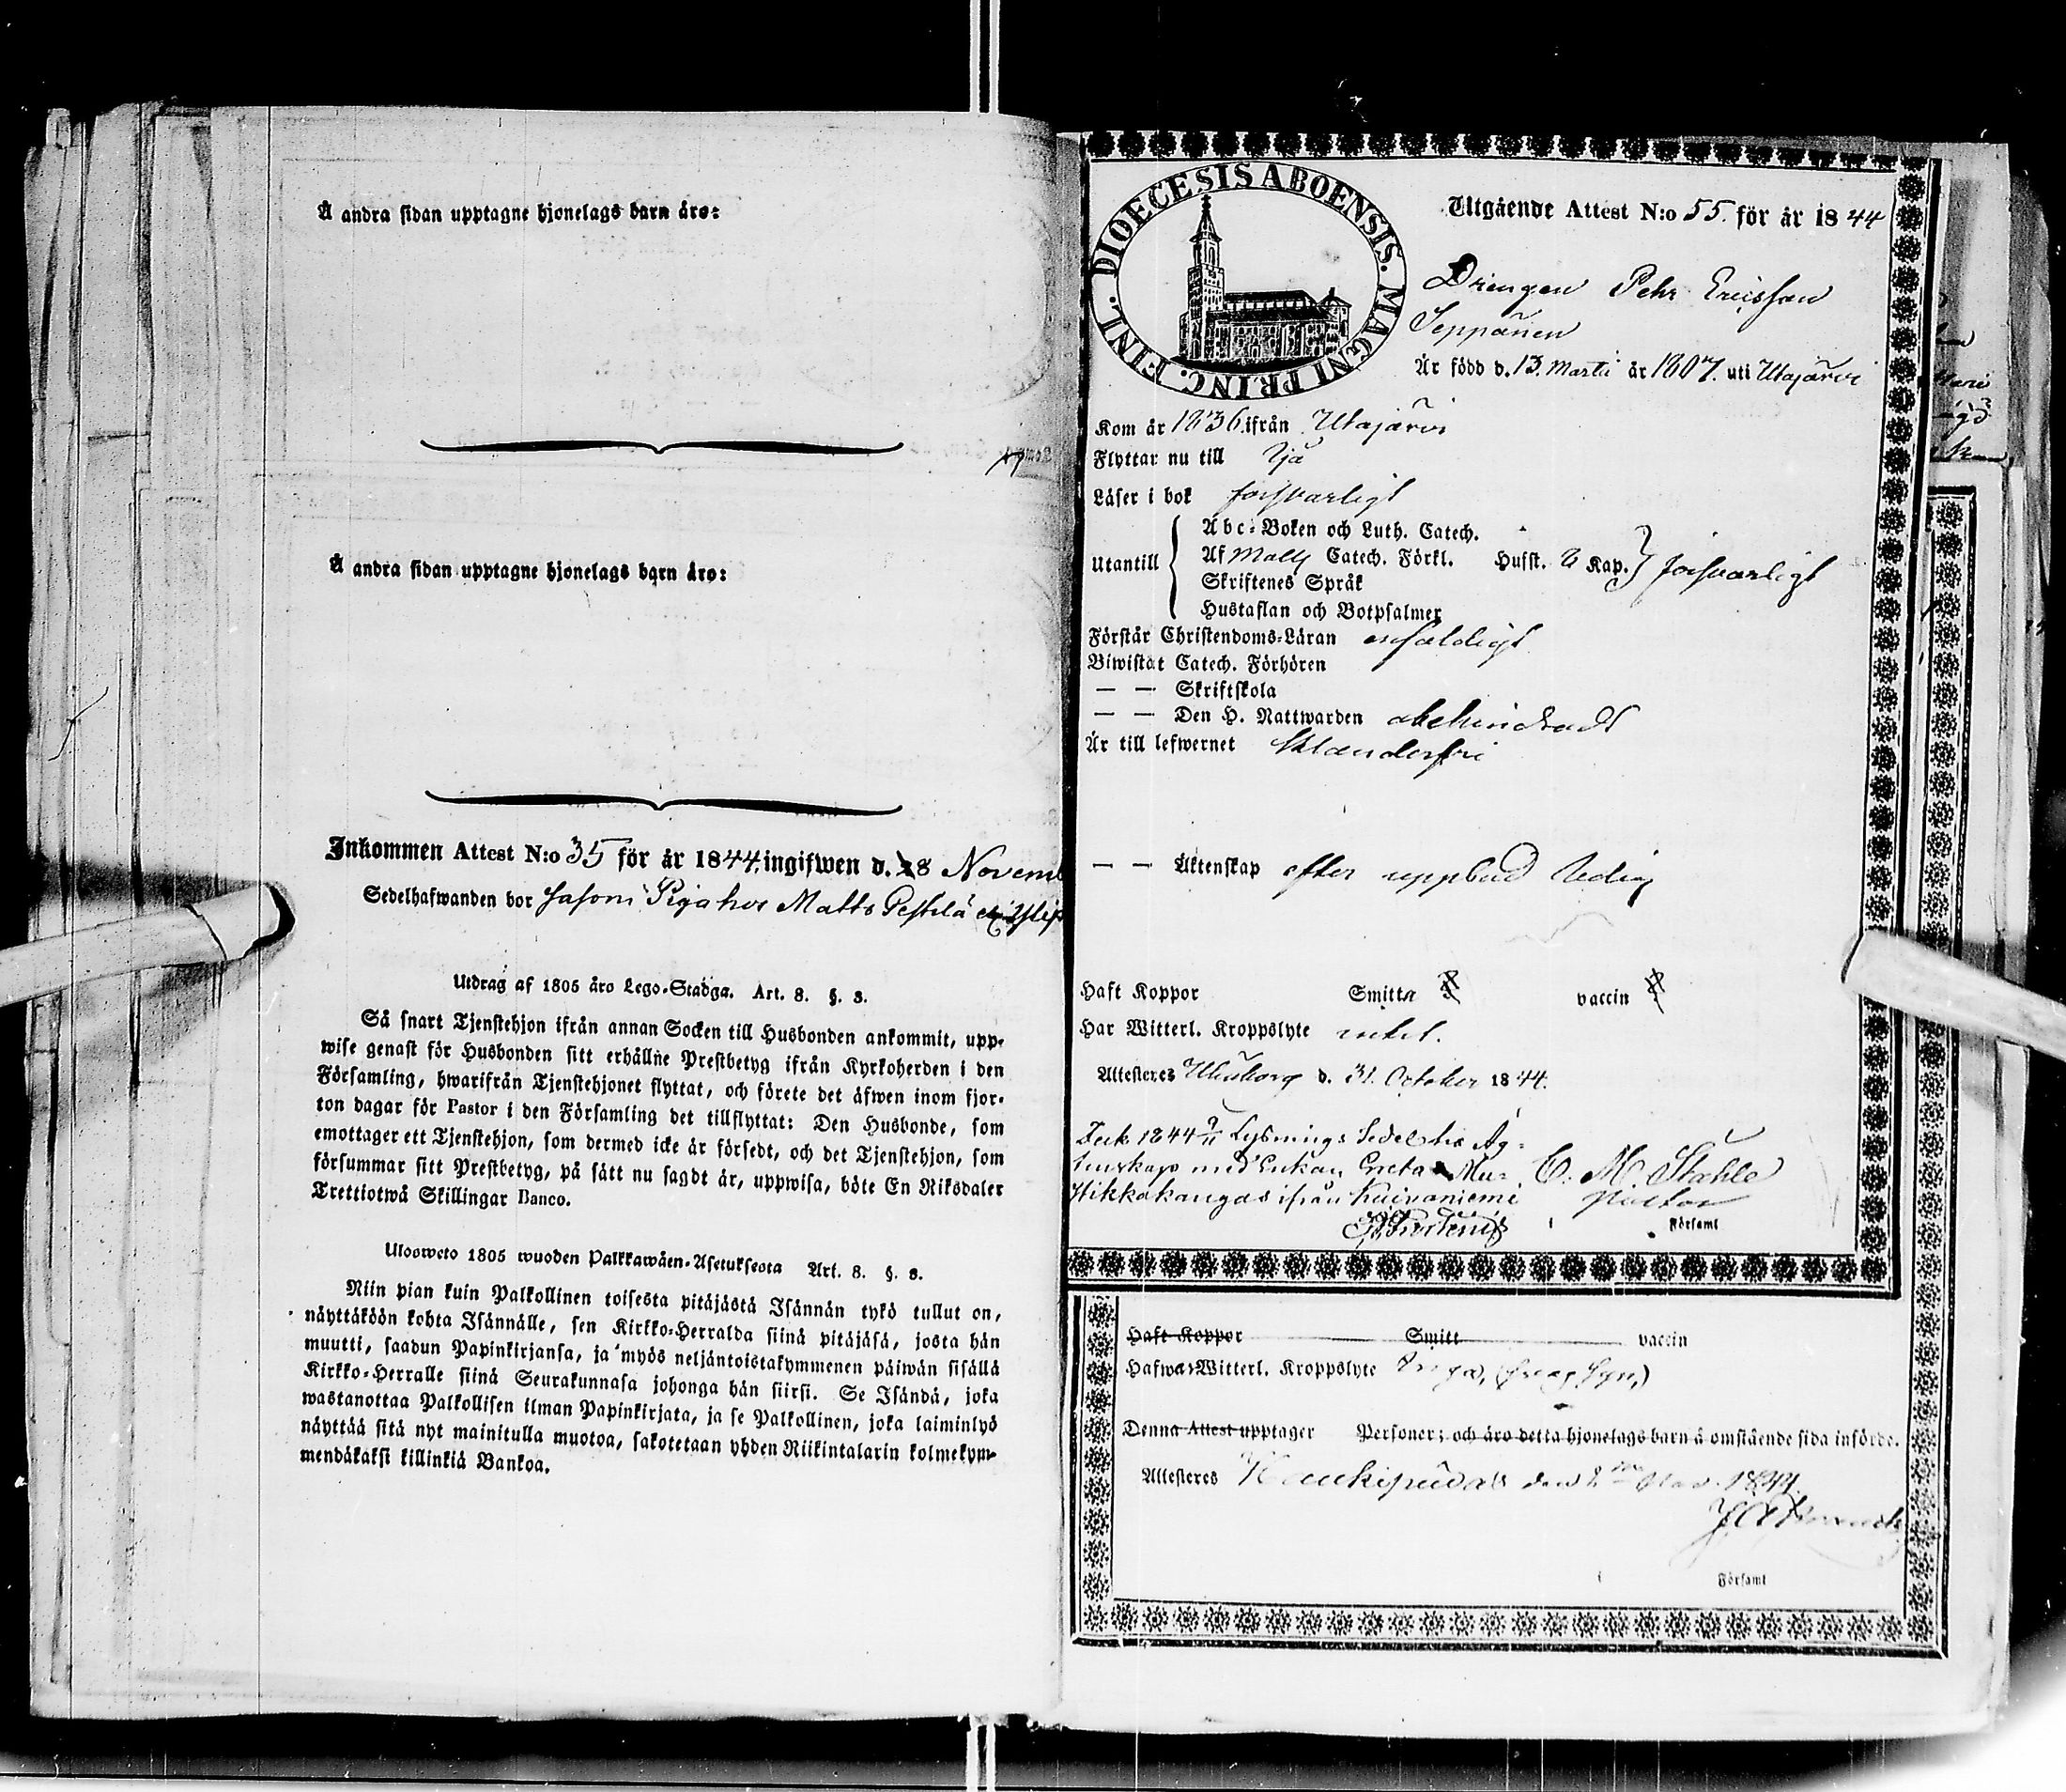 Å andra sidan upptagne hjonelags barn äro:
Å andra sidan upptagne hjonelags barn äro:
Inkommen Attest N:o 35 för år 1844, ingifwen d. 8 Novemb
Sedelhafwanden bor såsom Piga hos Matts
Utdrag af 1805 års Lego-Stadga. Art. 8. §. 8.
Så snart Tjenstehjon ifrån annan Socken till Husbonden ankommit, upp-
wise genast för Husbonden sitt erhållne Prestbetyg ifrån Kyrkoherden i den
Församling, hwarifrån Tjenstehjonet flyttat, och förete det äfwen inom fjor-
ton dagar för Pastor i den Församling det tillflyttat: Den Husbonde, som
emottager ett Tjenstehjon, som dermed icke är försedt, och det Tjenstehjon, som
försummar sitt Prestbetyg, på sätt nu sagdt är, uppwisa, böte En Riksdaler
Trettiotwå Skillingar Banco.
Ulosweto 1805 wuoden Palkkawäen-Asetuksesta Art. 8. §. 8.
Niin pian kuin Palkollinen toisesta pitäjästä Isännän tykö tullut on,
näyttäköön kohta Isännälle, sen Kirkko-Herralda siinä pitäjäsä, josta hän
muutti, saadun Papinkirjansa, ja myös neljäntoistakymmenen päiwän sisällä
Kirkko-Herralle siinä Seurakunnasa johonga hän siirsi. Se Isändä, joka
wastanottaa Palkollisen ilman Papinkirjata, ja se Palkollinen, joka laiminlyö
näyttää sitä nyt mainitulla muotoa, sakotetaan yhden Riikintalarin kolmekym-
mendäkaksi killinkiä Bankoa.
DIOECESIS ABOENSIS. MAGNI PRINC. FINL.
Utgående Attest N:o 55. för år 1844
Drengen Pehr Ericsson
Seppänen
Är född d. 13. Martii år 1807. uti Utajärvi
Kom år 1836 ifrån Utajärvi
Flyttar nu till Ijå
Läser i bok försvarligt
Utantill
Abc-Boken och Luth. Catech.
Af Mall Catech. Förkl. Husst. Kap. försvarligt
Skriftenes Språk
Hustaflan och Botpsalmer
Förstår Christendoms-Läran enfaldigt
Biwistat Catech. Förhören
— — Skriftskola
— — Den H. Nattwarden obehindradt
Är till lefwernet Klanderfri
— — Äktenskap efter uppbud ledig
Haft Koppor Smitta vaccin
Har Witterl. Kroppslyte intet.
Attesteres Uleåborg d. 31. October 1844.
1844 Lysnings Sedel till Äg-
tenskap med Enkan Greta
Hikkakangas ifrån Kuivaniemi
C. M. Ståhle
Pastor
i Församl
Haft Koppor Smitt vaccin
Hafwa Witterl. Kroppslyte Inga,
Denna Attest upptager Personer; och äro detta hjonelags barn å omstående sida införde.
Attesteres Haukipudas den Nov. 1844.
i Församl